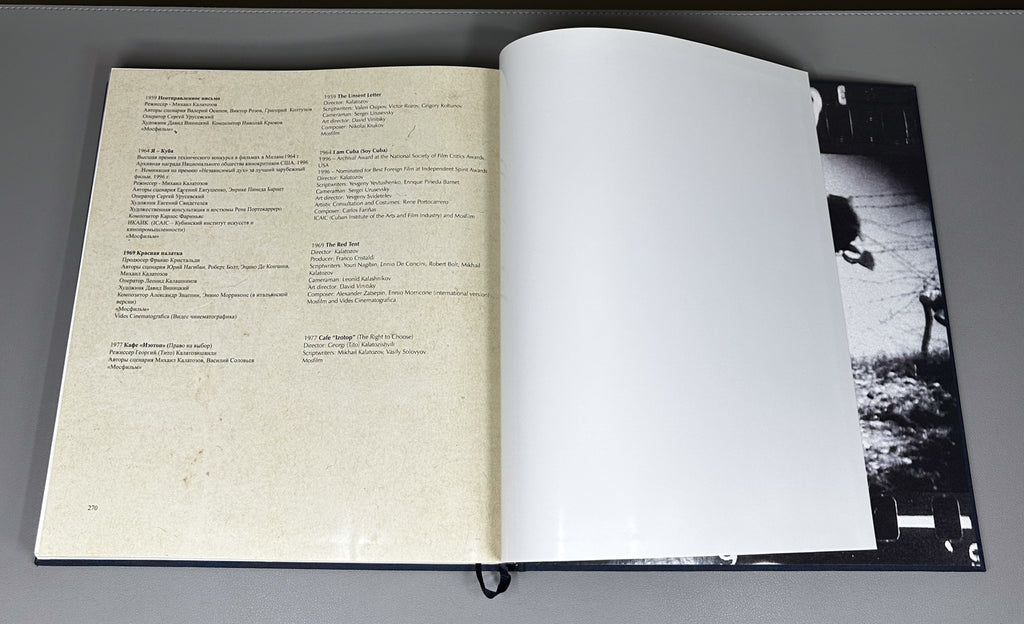 1959 Неотправленное письмо
Режиссер - Михаил Калатозов
Авторы сценария Валерий Осипов, Виктор Розов, Григорий Колтунов
Оператор Сергей Урусевский
Художник Давид Виницкий. Композитор Николай Крюков
«Мосфильм»
1964 Я – Куба
Высшая премия технического конкурса в фильмах в Милане 1964 г.
Архивная награда Национального общества кинокритиков США, 1996
г. Номинация на премию «Независимый дух» за лучший зарубежный
фильм, 1996 г
Режиссер - Михаил Калатозов
Авторы сценария Евгений Евтушенко, Энрике Пинеда Барнет
Оператор Сергей Урусевский
Художник Евгений Свидетелев
Художественная консультация и костюмы Рене Портокарреро
Композитор Карлос Фариньяс
ИКАИК (ICAIC – Кубинский институт искусств и
кинопромышленности)
«Мосфильм»
1969 Красная палатка
Продюсер Франко Кристальди
Авторы сценария Юрий Нагибин, Роберт Болт, Эннио Де Кончини,
Михаил Калатозов
Оператор Леонид Калашников
Художник Давид Виницкий
Композитор Александр Зацепин, Эннио Морриконе (в итальянской
версии)
«Мосфильм»
Vides Cinematografica (Видес чинематографика)
1977 Кафе «Изотоп» (Право на выбор)
Режиссер Георгий (Тито) Калатозишвили
Авторы сценария Михаил Калатозов, Василий Соловьев
«Мосфильм»
270
1959 The Unsent Letter
Director: Kalatozov
Scriptwriters: Valeri Osipov, Victor Rozov, Grigory Koltunov
Cameraman: Sergei Urusevsky
Art director: David Vinitsky
Composer: Nikolai Krukov
Mosfilm
1964 I am Cuba (Soy Cuba)
1996 – Archival Award at the National Society of Film Critics Awards,
USA
1996 – Nominated for Best Foreign Film at Independent Spirit Awards
Director: Kalatozov
Scriptwriters: Yevgeny Yevtushenko, Enrique Pineda Barnet
Cameraman: Sergei Urusevsky
Art director: Yevgeny Svidetelev
Artistic Consultation and Costumes: Rene Portocarrero
Composer: Carlos Fariñas
ICAIC (Cuban Institute of the Arts and Film Industry) and Mosfilm
1969 The Red Tent
Director: Kalatozov
Producer: Franco Cristaldi
Scriptwriters: Youri Nagibin, Ennio De Concini, Robert Bolt, Mikhail
Kalatozov
Cameraman: Leonid Kalashnikov
Art director: David Vinitsky
Composer: Alexander Zatsepin, Ennio Morricone (international version)
Mosfilm and Vides Cinematografica
1977 Cafe "Izotop" (The Right to Choose)
Director: Georgi (Tito) Kalatozishvili
Scriptwriters: Mikhail Kalatozov, Vasily Solovyov
Mosfilm